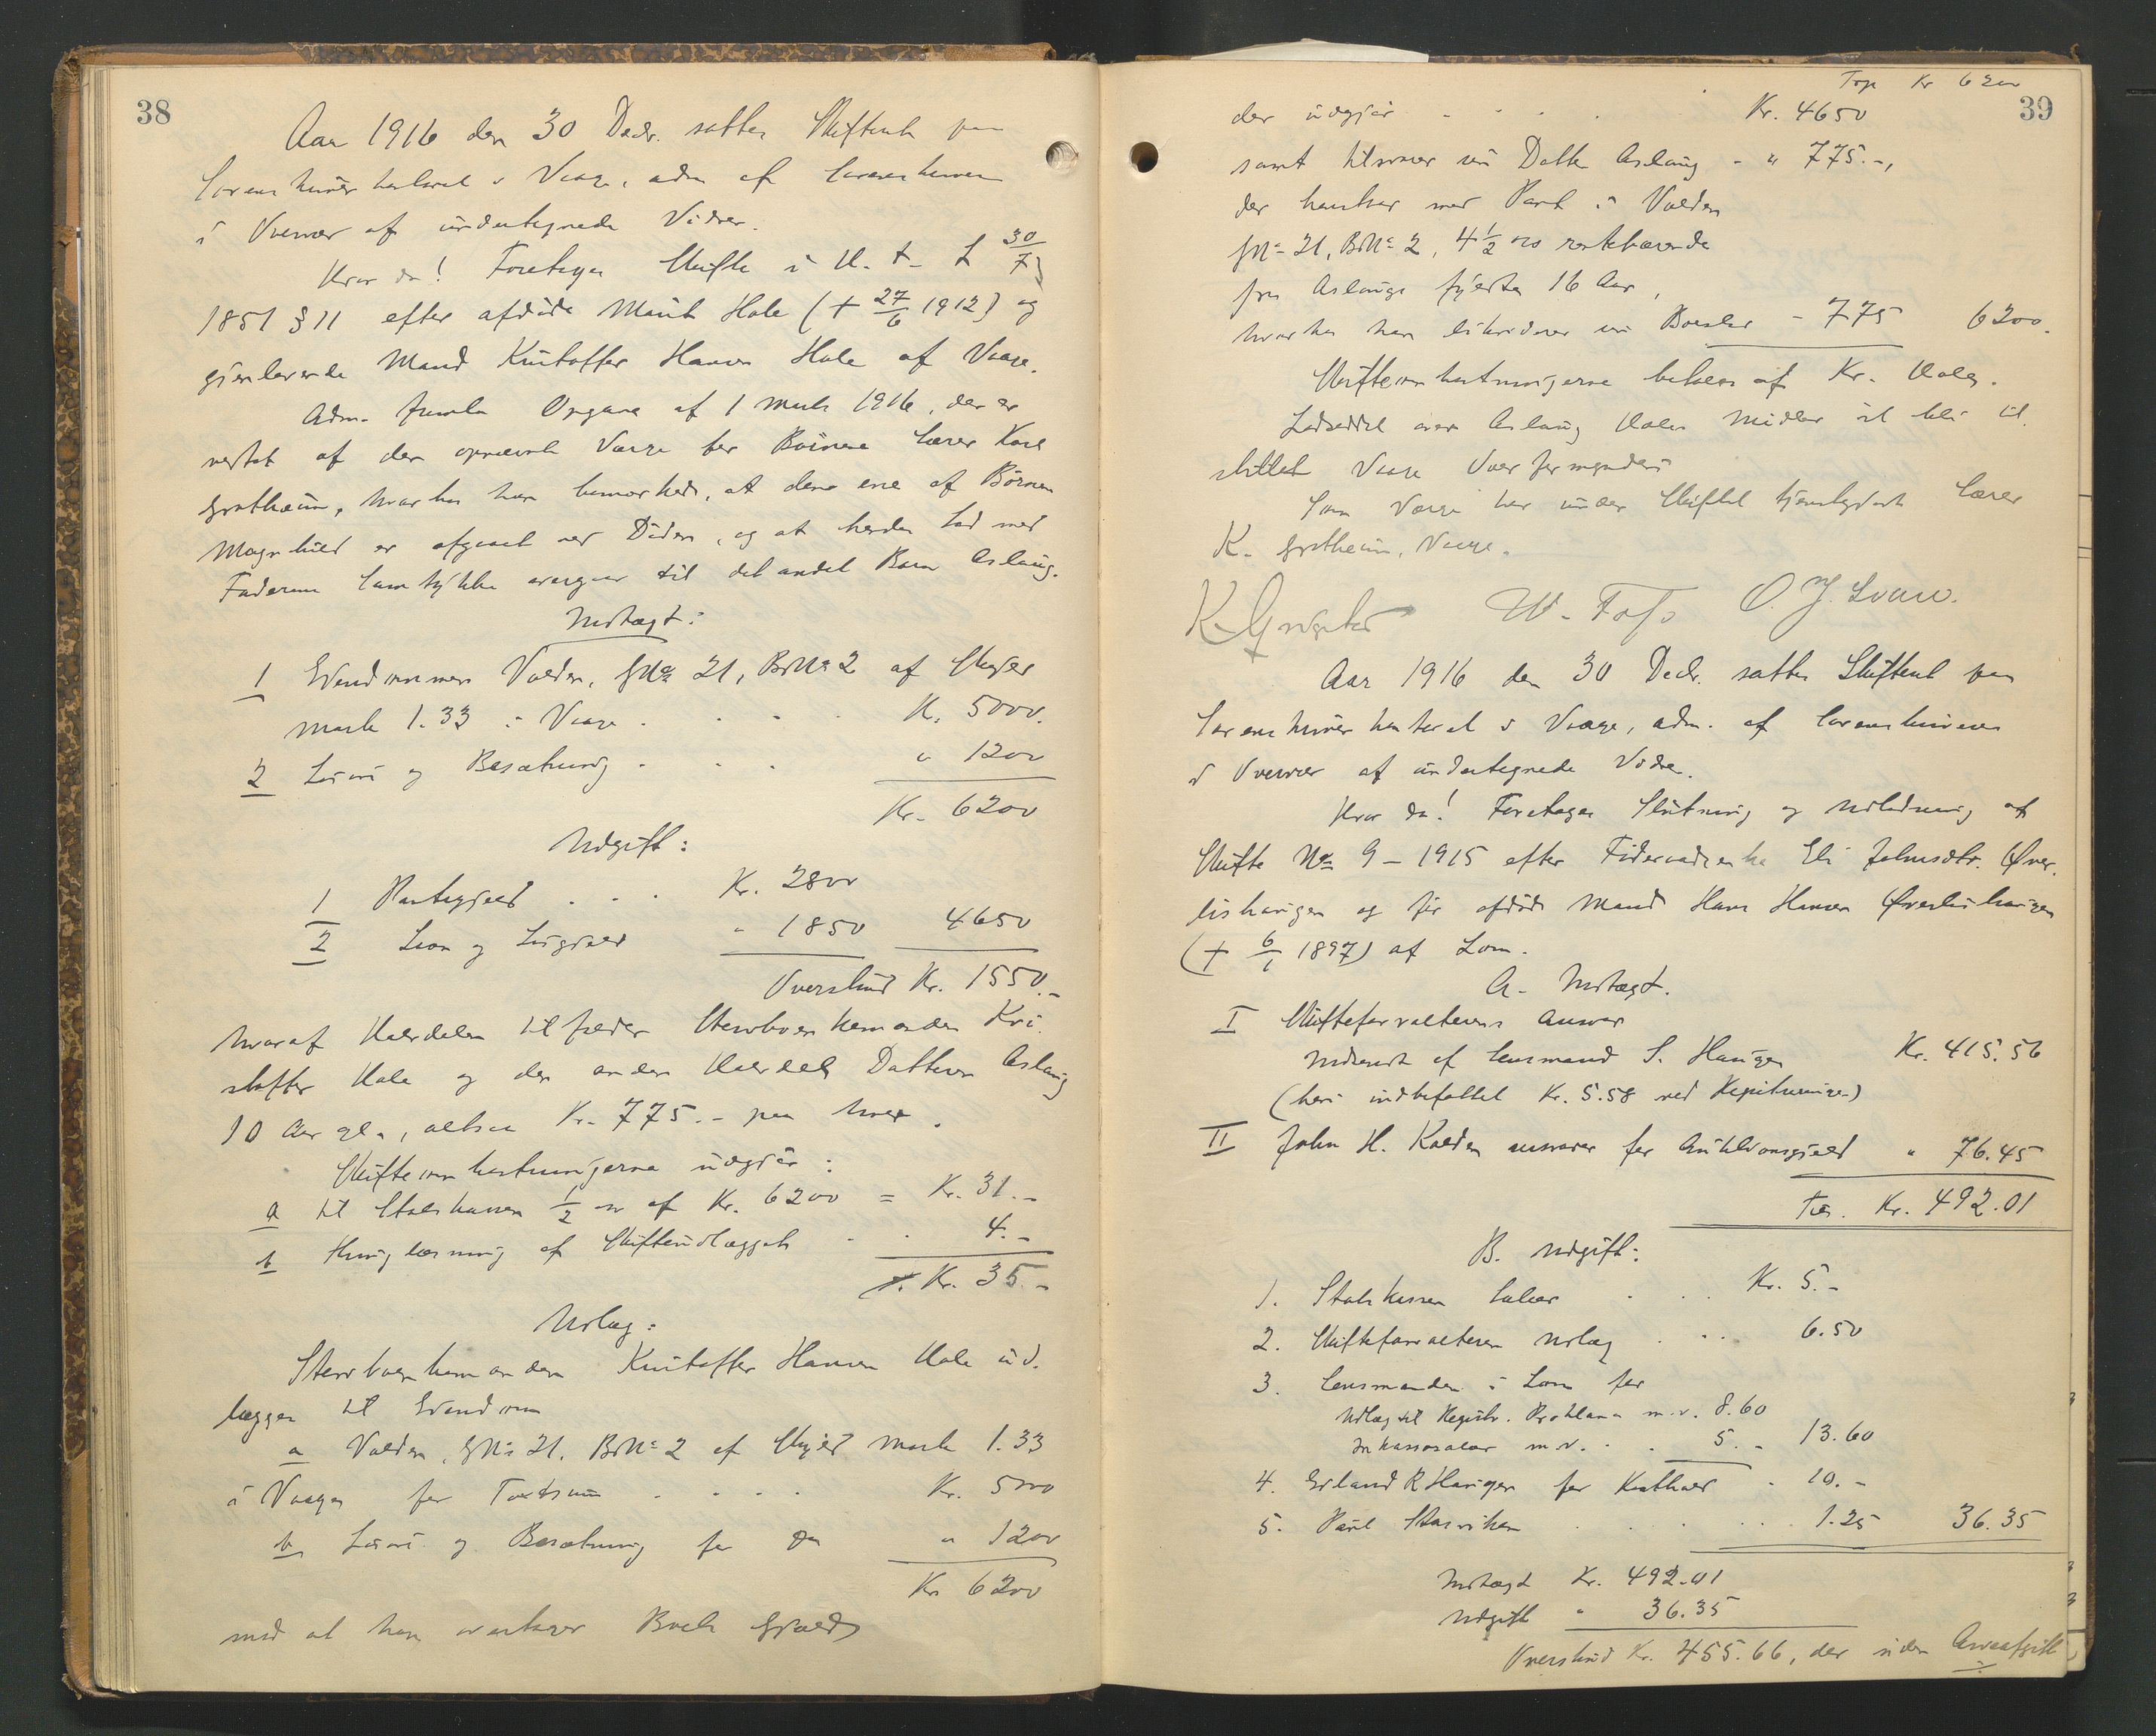 38
Aar 1916 den 30 Decbr. sattes Skifteret paa
Sorenskriverkontoret i Vaage, adm. af Sorenskriveren
i Overvær af undertegnede Vidner.
Hvor da! Foretoges Skifte i H. t. L 30/7
1851 § 11 efter afdøde Marit Hole († 27/6 1912) og
gjenlevende Mand Kristoffer Hansen Hole af Vaage.
Adm. fremla Opgave af 1 Marts 1916, der er
af den opnævnte Værge for Børnene Lærer Karl
Grotheim, hvorhos han bemærkede, at den ene af Børnene
Magnhild er afgaaet ved Døden, og at hendes Lod med
Faderens Samtykke overgaar til det andet Barn Aslaug.
Indtægt:
1 Eiendommen Volden, GNo 21, BrNo 2 af Skyld
Mark 1.33 i Vaage . . . Kr. 5000.
2 Løsøre og Besætning . . . " 1200
Kr. 6200
Udgift:
1 Pantegjæld . . . Kr. 2800
2 Laan og Løsgjæld " 1850 4650
Overskud Kr. 1550.-
hvoraf Halvdelen tilfalder Stervboenkemanden Kri-
stoffer Hole og den anden Halvdel Datteren Aslaug
10 Aar gl., altsaa Kr. 775.- paa hver.
Skifteomkostningerne udgjør:
a til Statskassen 1/2 % af Kr. 6200 = Kr. 31.-
b Thinglæsning af Skifteudlægget . . 4.-
Kr. 35.-
Udlæg:
Stervboenkemanden Kristoffer Hansen Hole ud-
lægges til Eiendom
a Volden, GNo 21, BrNo 2 af Skyld Mark 1.33
i Vaage for Taxtsum . . . . Kr. 5000
b Løsøre og Besætning for Do " 1200
Kr 6200
mod at han overtager Boets Gjæld
39
Tsp. Kr 6200
der udgjør . . . . Kr. 4650
samt tilsvarer sin Datter Aslaug - " 775.-,
der hæftes med Pant i Volden
GNo 21, BrNo 2, 4 1/2 % rentebærende
fra Aslaugs fyldte 16 Aar,
hvorhos han likviderer sin Boeslod - 775 6200.
Skifteomkostningerne betales af Kr. Hole.
Lodseddel over Aslaug Holes Midler vil bli til-
stillet Vaage Overformynderi
Som Værge har under Skiftet tjenstgjort Lærer
K. Grotheim, Vaage.
W. Foss O. J. Svare.
Aar 1916 den 30 Decbr. sattes Skifteret paa
Sorenskriverkontoret i Vaage, adm. af Sorenskriveren
i Overvær af undertegnede Vidner.
Hvor da! Foretoges Slutning og Udlodning af
Skifte No 9 - 1915 efter Føderaadsenke Eli Johnsdtr. Øver-
lishaugen og før afdøde Mand Hans Hansen Øverlishaugen
(† 6/1 1897) af Lom.
A. Indtægt.
I Skifteforvalterens Ansvar
Indsendt af Lensmand S. Haugen Kr. 415.56
(heri indbefattet Kr. 5.58 ved )
II John H. Kolden ansvarer for Auktionsgjæld " 76.45
Tils. Kr. 492.01
B. Udgift:
1. Statskassen Salær . . Kr. 5.-
2. Skifteforvalteren Udlæg . . . 6.50
3. Lensmanden i Lom for
Udlæg til Registr. Proklama m.v. 8.60
Inkassosalær m.v. . . 5.- 13.60
4. Erland R Haugen for Kosthold . 10.-
5. Paul Storviken . . . . . 1.25 36.35
Indtægt Kr. 492.01
Udgift " 36.35
Overskud Kr. 455.66, der uden Arveafgift